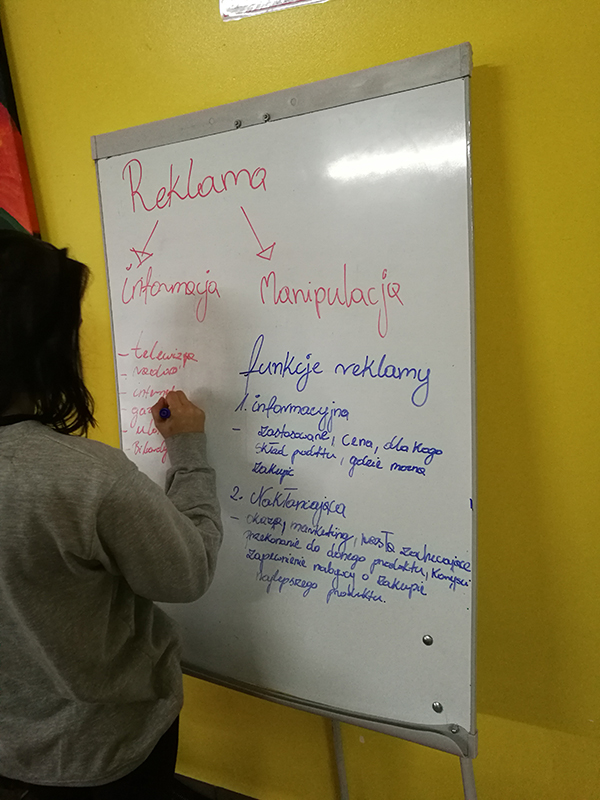 Reklama
informacja
Manipulacja
- telewizja
- intern
- ga
- ul
- Bilbordy
funkcje reklamy
1. informacyjna
- zastosowanie, cena, dla kogo
skład produktu, gdzie można
zakupić
2. Nakłaniająca
- okazja, marketing, hasła zachęcające
przekonanie do danego produktu, Korzyści
zapewnienie nabywcy o zakupie
najlepszego produktu.